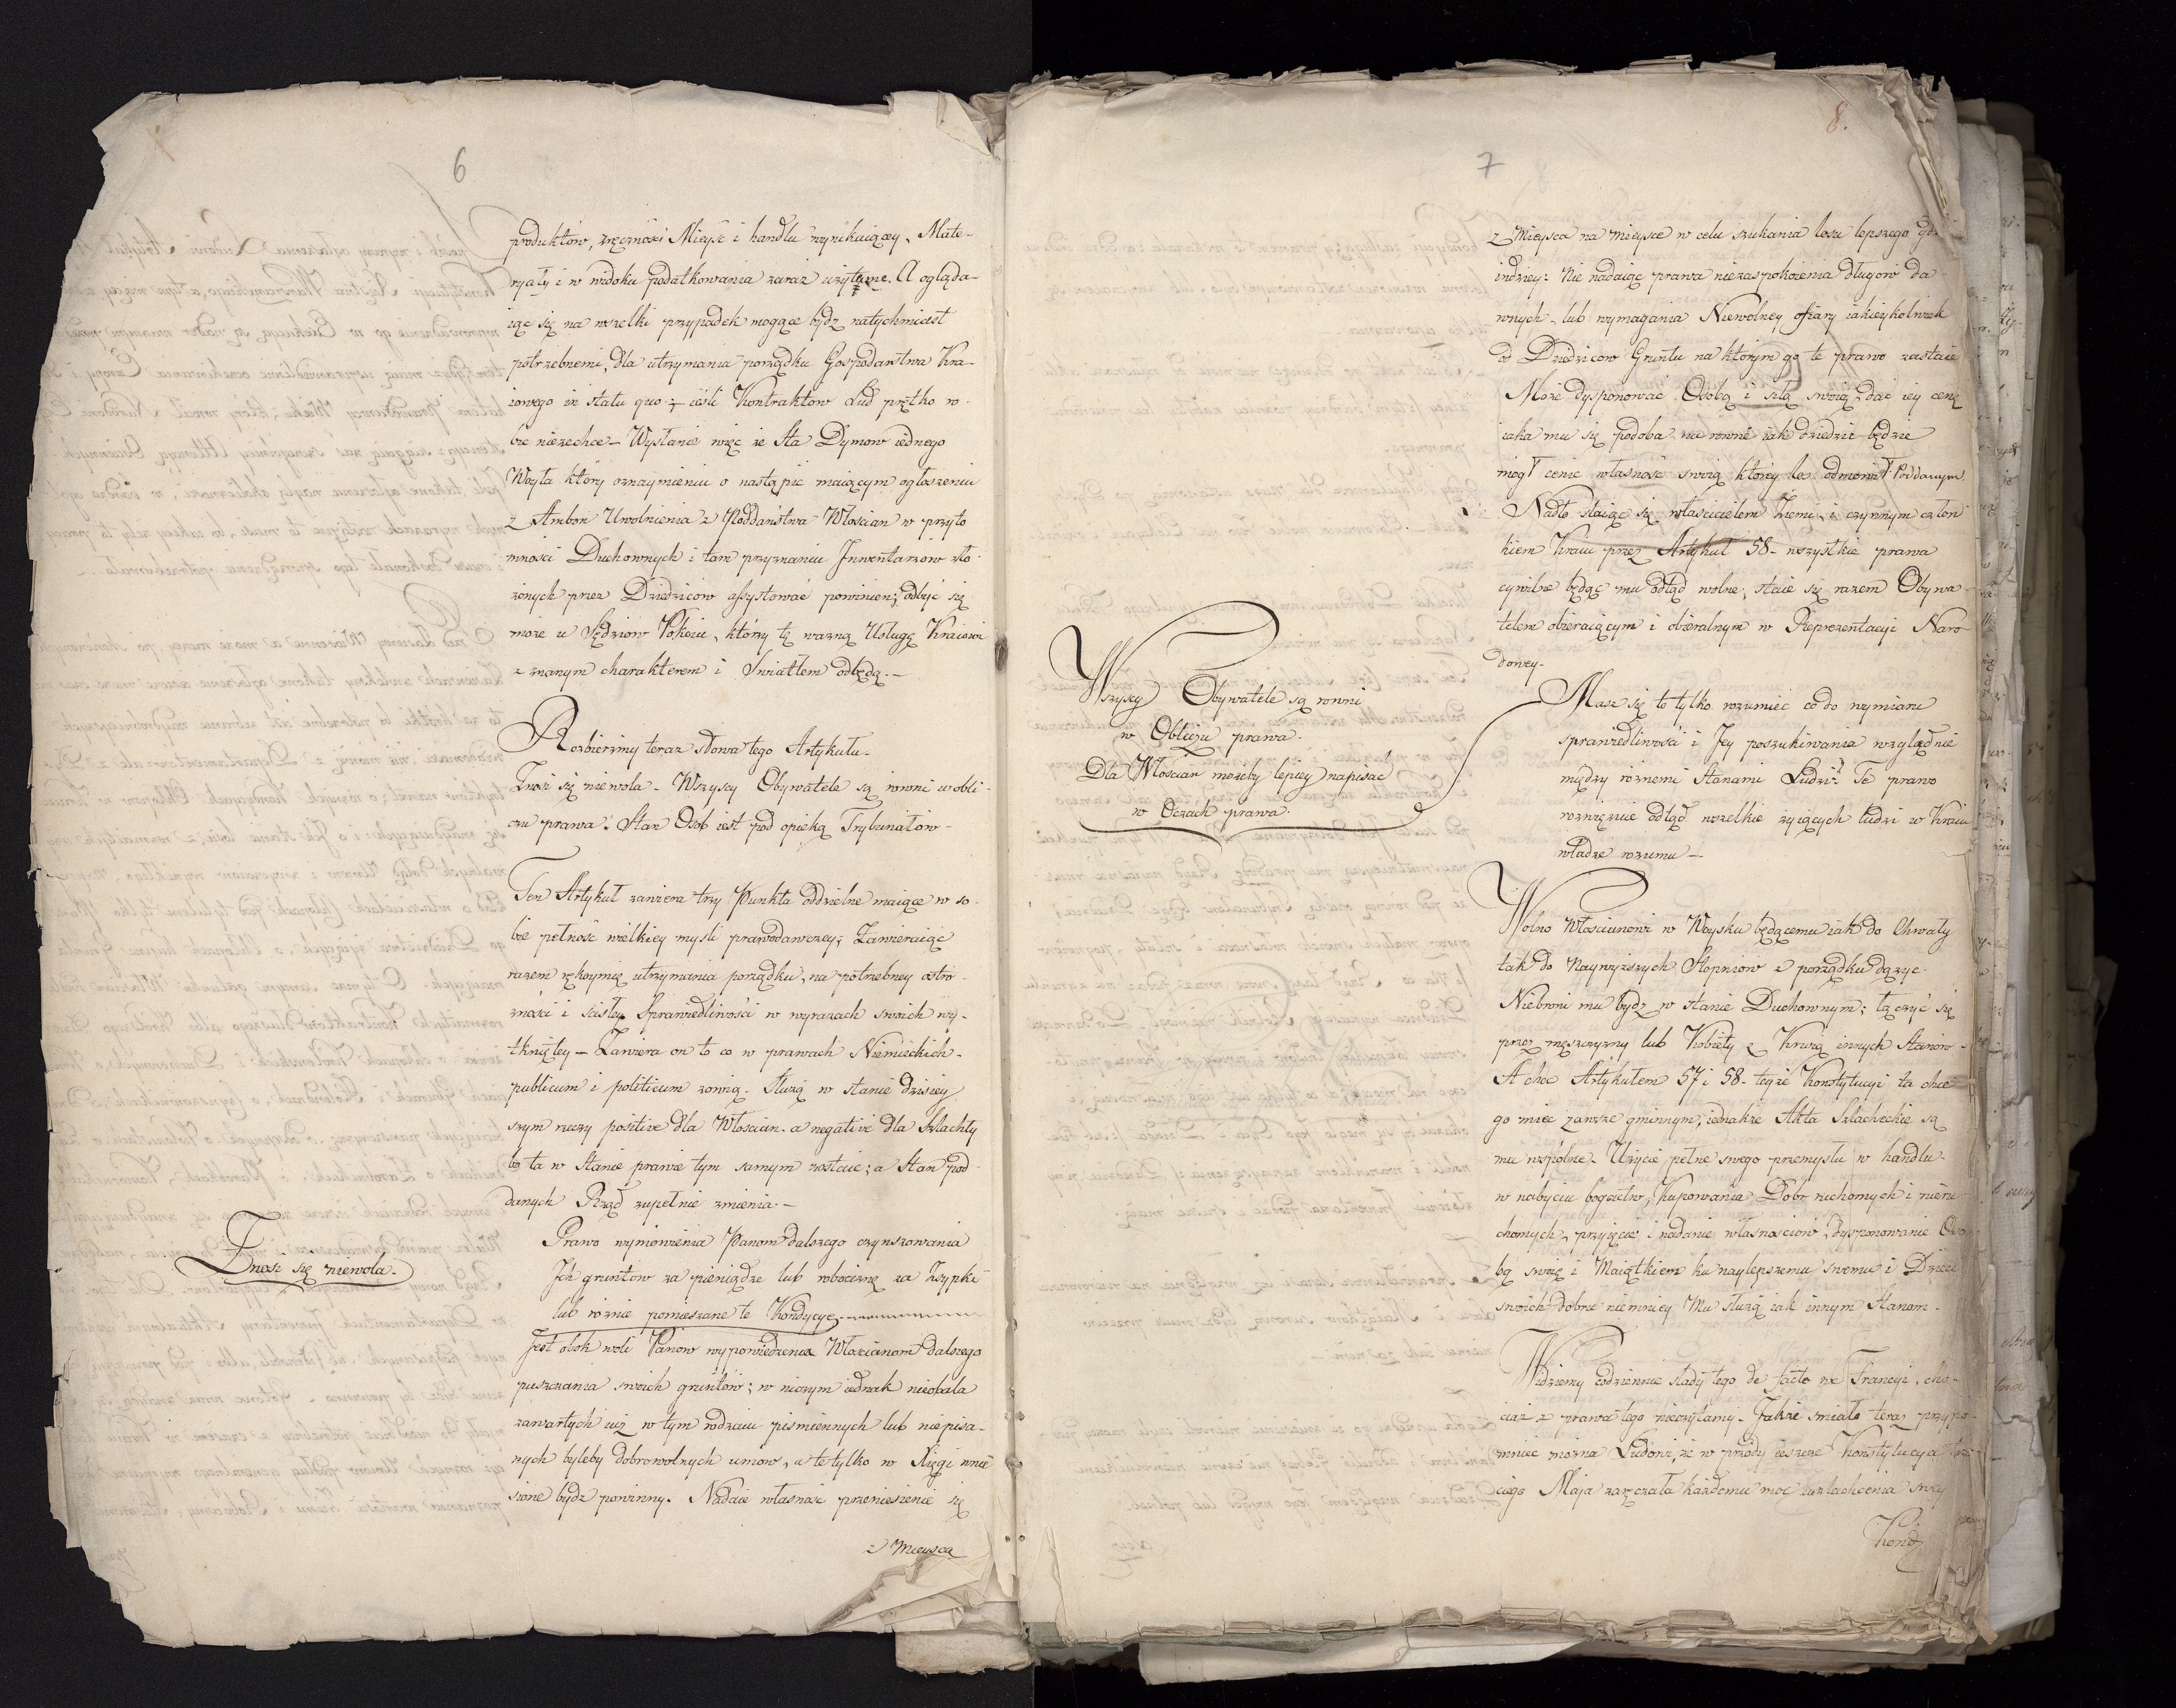 6
produktow, zręcznosci Mieysc i handlu wynikaiącey, Mate-
ryały i w widoku podatkowania zaraz użyteczne. A ogląda-
iąc się na wszelki przypadek mogące bydz natychmiast
potrzebnemi, dla utrzymania porządku Gospodarstwa Kra-
iowego in statu quo; iesli Kontraktow Lud prętko ro-
bic niezechce – Wysłanie więc ze sta Dymow iednego
Woyta ktory oznaymieniu o nastąpic maiącym ogłoszeniu
z Ambon Uwolnienia z Poddaństwa Włoscian w przyto
mnosci Duchownych i tam przyznaniu Jnwentarzow zło-
żonych przez Dziedzicow assystować powinien; odbyć się
może u Sędziow Pokoiu, ktorzy tę ważną Usługę Kraiowi
z znanym charakterem i Swiatłem odbędą. –
Rozbierzmy teraz słowa tego Artykułu.
Znosi się niewola – Wszyscy Obywatele są rowni w obli-
czu prawa: Stan Osob iest pod opieką Trybunałow –
Ten Artykuł zawiera trzy Punkta oddzielne maiące w so-
bie pełność wielkiey mysli prawodawczey; Zawieraiąc
razem rękoymię utrzymania porządku, na potrzebney ostro-
żności i scisłey Sprawiedliwości w wyrazach swoich wy-
tkniętey – Zawiera on to co w prawach Niemieckich
publicum i politicum zowią. Służą w stanie dzisiey
szym rzeczy positive dla Włoscian. a negative dla Szlachty
bo ta w Stanie prawie tym samym zostaie; a Stan pod-
danych Rząd zupełnie zmienia –
Znosi się niewola.
Prawo wymowienia Panom dalszego czynszowania
Jch gruntow za pieniądze lub robociznę za Zsypki
lub rożnie pomieszane te Kondycye
Jest obok woli Panow wypowiedzenia Włoscianom dalszego
puszczania swoich gruntów; w niczym iednak nieobala
zawartych iuż w tym rodzaiu pismiennych lub niepisa-
nych byleby dobrowolnych umow, a te tylko w Xięgi wnie
sione bydz powinny. Nadaie własnosc przeniesienie się
z Mieysca
7
8.
z Mieysca na mieysce w celu szukania losu lepszego gdz
indziey: Nie nadaiąc prawa niezaspokoienia długow da
wnych lub wymagania Niewolney ofiary iakieykolwiek
od Dziedzicow Gruntu na ktorym go te prawo zastaie
Może dysponować Osobą i siłą swoią, dać iey cenę
iaka mu się podoba na rowni iak dziedzic będzie
mogł cenic własnosc swoią ktorey los odmowił Poddanym.
Nadto staiąc się właścicielem Ziemi, i czynnym człon
kiem Kraiu przez Artykuł 58 – wszystkie prawa
cywilne będąc mu odtąd wolne, staie się razem Obywa-
telem obieraiącym i obieralnym w Reprezentacyi Naro-
dowey –
Wszyscy Obywatele są rowni
w Obliczu prawa.
Dla Włoscian możeby lepiey napisać
w Oczach prawa.
Masz się to tylko rozumieć co do wymiaru
sprawiedliwości i Jey poszukiwania względnie
między rożnemi Stanami Ludzi. Te prawo
rozwięzuie odtąd wszelkie żyiących ludzi w Kraiu
władze rozumu –
Wolno Włościanowi w Woysku będącemu iak do Chwały
tak do Naywyższych Stopniow z porządku dążyc.
Niebroni mu bydz w stanie Duchownym; łączyć się
przez męszczyzny lub Kobiety z Krwią innych Stanow –
A choc Artykułem 57 i 58 – teyże Konstytucyi ta chce
go miec zawsze gminnym, iednakże Akta Szlacheckie są
mu wspólne. Użycie pełne swego przemysłu w handlu –
w nabyciu bogactw, Kupowania Dobr ruchomych i nieru
chomych, przyięcie i nadanie własnosciow, dysponowanie Oso
bą swoią i Maiątkiem ku naylepszemu swemu i Dzieci
swoich dobru niemniey Mu służą iak innym Stanom.
Widziemy codziennie slady tego de facto we Francyi, cho-
ciaż z prawa tego nieczytamy. Jakże smiało teraz przypo-
mniec można Ludowi, że w przody ieszcze Konstytucya trze
ciego Maja zaręczała każdemu moc uszlachcenia swey
Kond